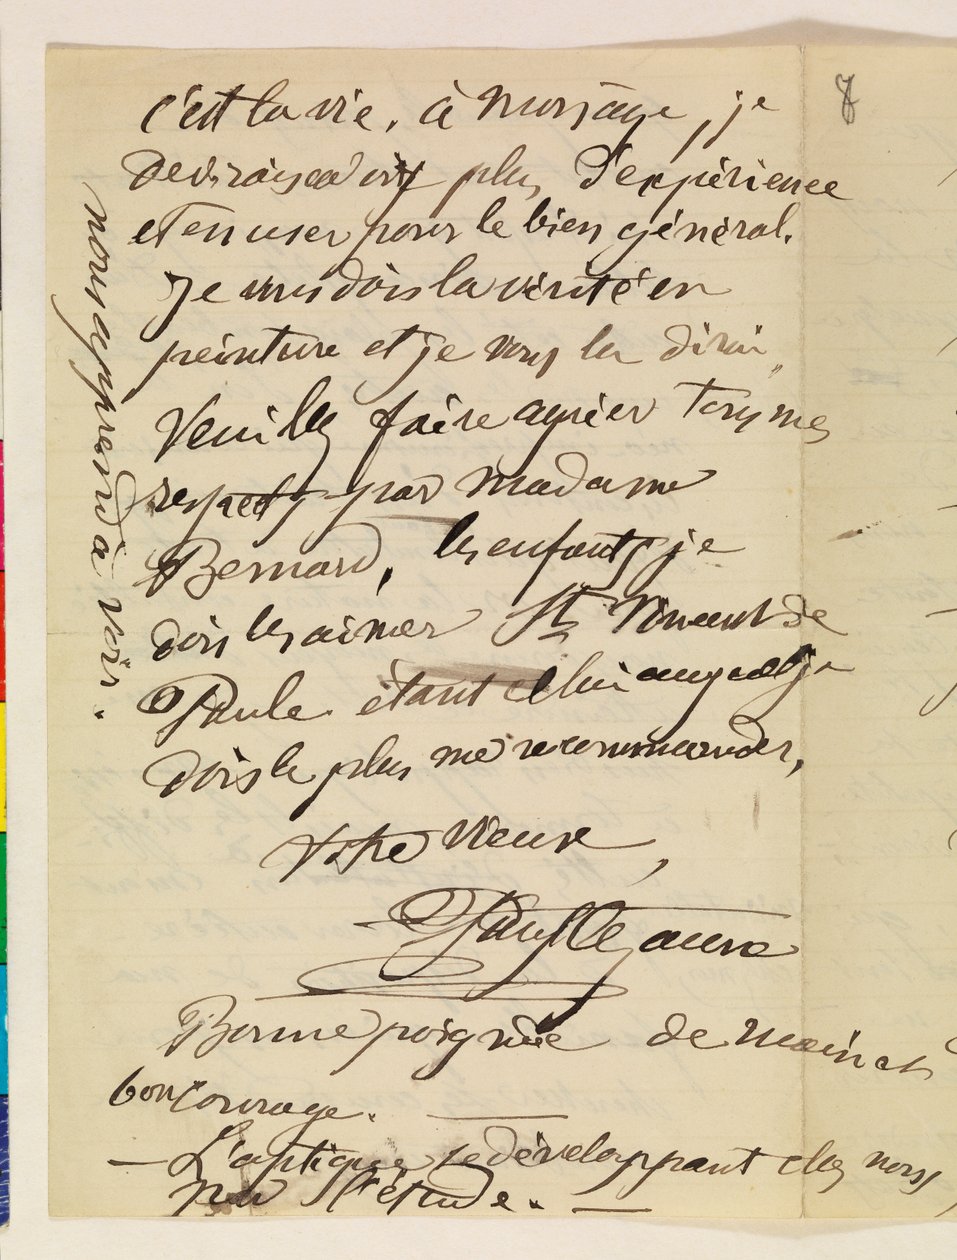 8
c'est la vie. à mon âge, je
devrais avoir plus d'expérience
et en user pour le bien général.
je vous dois la vérité en
peinture et je vous la dirai
Veuillez faire agréer tous mes
respects par Madame
Bernard, les enfants je
dois les aimer St Vincent de
Paule étant celui auquel je
dois le plus me recommander,
Votre vieux,
Paul Cezanne
Bonne poignée de main et
bon courage.
— L'optique se développant chez nous
par l'étude. —
nous apprend à voir.